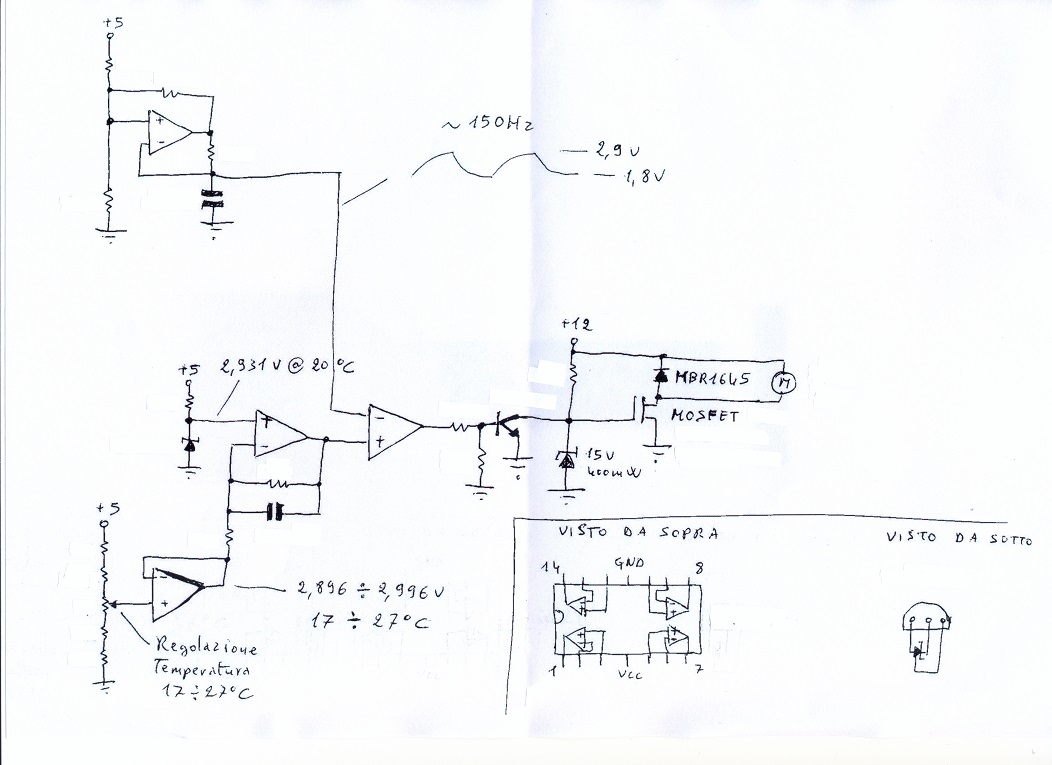 +5
~ 150Hz
2,9 V
1,8V
+12
+5
2,931 V @ 20°C
+
-
-
+
MBR1645
M
MOSFET
15V
400mW
+5
-
+
2,896 ÷ 2,996 V
17 ÷ 27°C
Regolazione
Temperatura
17÷27°C
VISTO DA SOPRA
VISTO DA SOTTO
14
GND
8
1
VCC
7